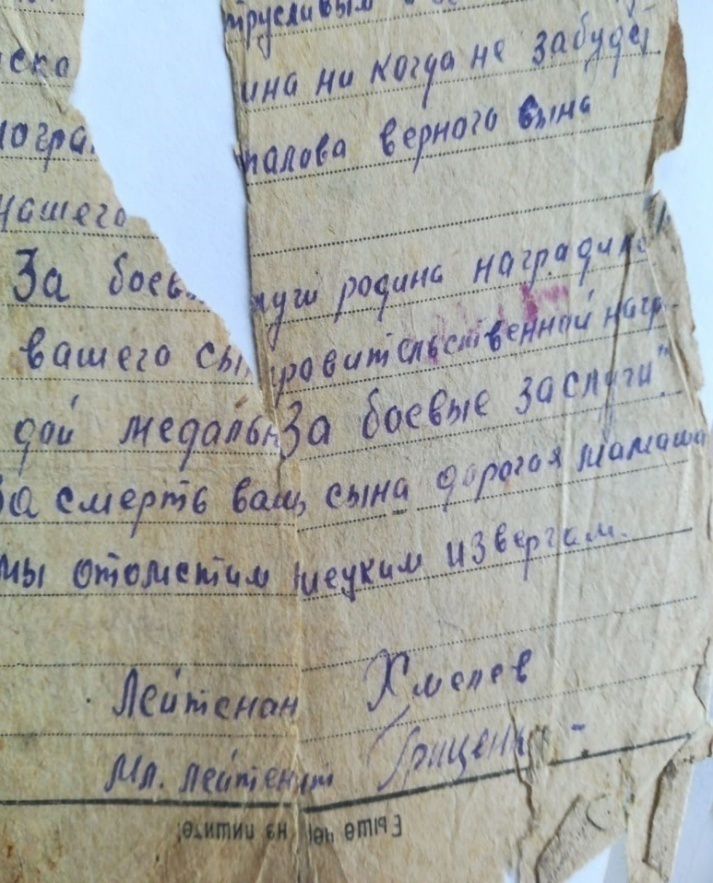 трусливым
ско ина ни когда не забудет
погра палова верного сына
нашего
За боевы луги родина наградила
вашего сы правительственной нагр-
дой медалью "За боевые заслуги".
За смерть ваш сына дорогая мамаша
мы отомстим мецким извергам.
Лейтенан Хмелев
Мл. лейтенант Гриценк